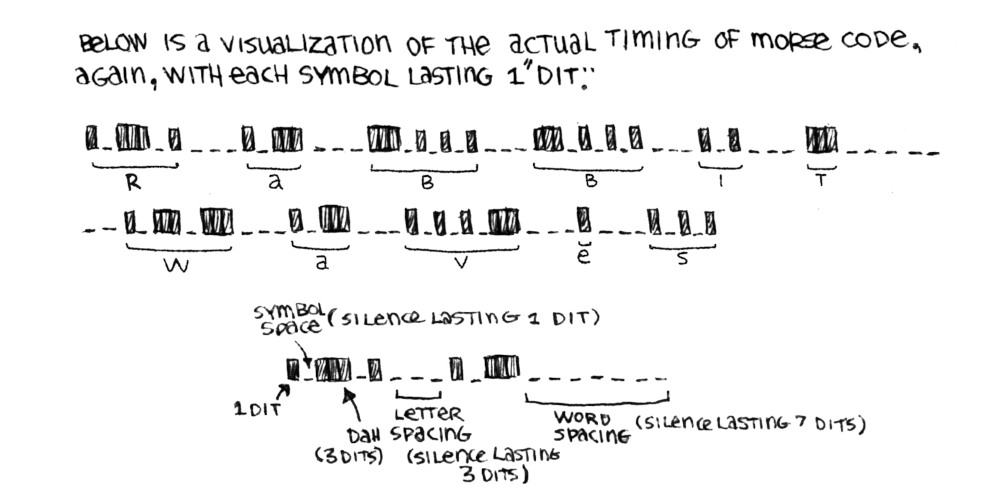 BeLOW IS a VISUaLIZATION OF THe aCTUaL TIMING OF MORSe CODe,
aGaIN, WITH eaCH SYMBOL LaSTING 1 "DIT":
R a B B I T
W a V e S
SYMBOL
SPaCe (SILeNCe LaSTING 1 DIT)
1 DIT
DaH
(3 DITS)
LeTTeR
SPaCING
(SILeNCe LaSTING
3 DITS)
WORD
SPaCING
(SILeNCe LaSTING 7 DITS)